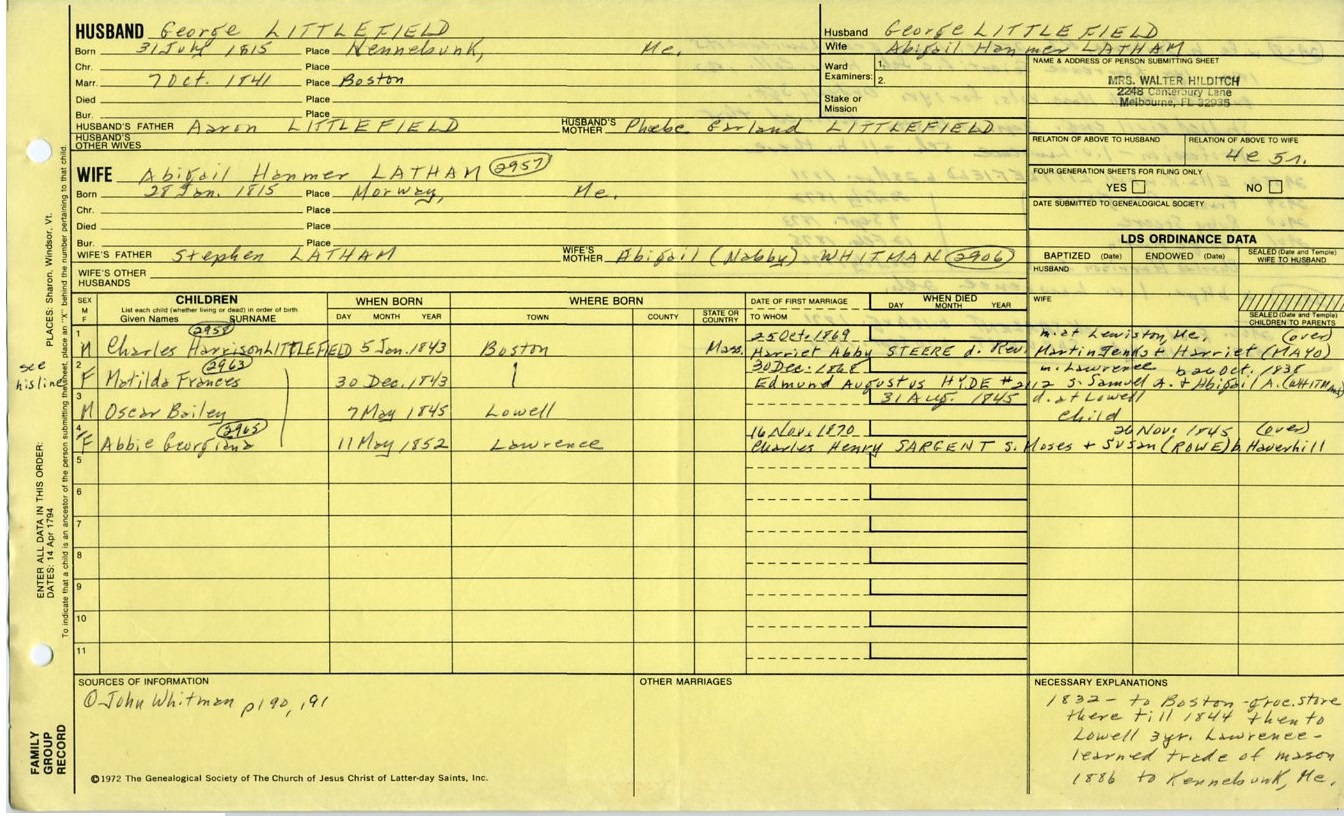 HUSBAND George LITTLEFIELD
Born 31 July 1815 Place Kennebunk, Me.
Chr. Place
Marr. 7 Oct. 1841 Place Boston
Died Place
Bur. Place
HUSBAND'S FATHER Aaron LITTLEFIELD HUSBAND'S MOTHER Phoebe Garland LITTLEFIELD
HUSBAND'S OTHER WIVES
Husband George LITTLEFIELD
Wife Abigail Hanmer LATHAM
Ward Examiners: 1. 2.
Stake or Mission
NAME & ADDRESS OF PERSON SUBMITTING SHEET
MRS. WALTER HILDITCH
2248 Canterbury Lane
Melbourne, FL 32935
RELATION OF ABOVE TO HUSBAND RELATION OF ABOVE TO WIFE
4c 5r.
FOUR GENERATION SHEETS FOR FILING ONLY
YES NO
DATE SUBMITTED TO GENEALOGICAL SOCIETY
WIFE Abigail Hanmer LATHAM 2957
Born 28 Jan. 1815 Place Norway, Me.
Chr. Place
Died Place
Bur. Place
WIFE'S FATHER Stephen LATHAM WIFE'S MOTHER Abigail (Nabby) WHITMAN 2906
WIFE'S OTHER HUSBANDS
LDS ORDINANCE DATA
BAPTIZED (Date) ENDOWED (Date) SEALED (Date and Temple) WIFE TO HUSBAND
HUSBAND
WIFE
SEALED (Date and Temple) CHILDREN TO PARENTS
SEX M F CHILDREN WHEN BORN WHERE BORN DATE OF FIRST MARRIAGE WHEN DIED
List each child (whether living or dead) in order of birth
Given Names SURNAME DAY MONTH YEAR TOWN COUNTY STATE OR COUNTRY TO WHOM DAY MONTH YEAR
1 2958 25 Oct. 1869 m. at Lewiston, Me. (over)
M Charles Harrison LITTLEFIELD 5 Jan. 1843 Boston Mass. Harriet Abby STEERE d. Rev. Martin Jends + Harriet (MAYO)
2 2963 30 Dec. 1868 m. Lawrence b 26 Oct. 1838
F Matilda Frances 30 Dec. 1843 Edmund Augustus HYDE #2112 s. Samuel A. + Abigail A. (WHITMAN)
see his line
3 31 Aug. 1845 d. at Lowell
M Oscar Bailey 7 May 1845 Lowell child
4 2965 16 Nov. 1870 26 Nov. 1845 (over)
F Abbie Georgiana 11 May 1852 Lawrence Charles Henry SARGENT s. Moses + Susan (ROWE) b. Haverhill
5
6
7
8
9
10
11
SOURCES OF INFORMATION
① John Whitman p190, 191
OTHER MARRIAGES
NECESSARY EXPLANATIONS
1832 - to Boston - groc. store
there till 1844 then to
Lowell 3 yr. Lawrence -
learned trade of mason
1886 to Kennebunk, Me.
©1972 The Genealogical Society of The Church of Jesus Christ of Latter-day Saints, Inc.
FAMILY GROUP RECORD
ENTER ALL DATA IN THIS ORDER:
DATES: 14 Apr 1794
PLACES: Sharon, Windsor, Vt.
To indicate that a child is an ancestor of the person submitting the sheet, place an "X" behind the number pertaining to that child.